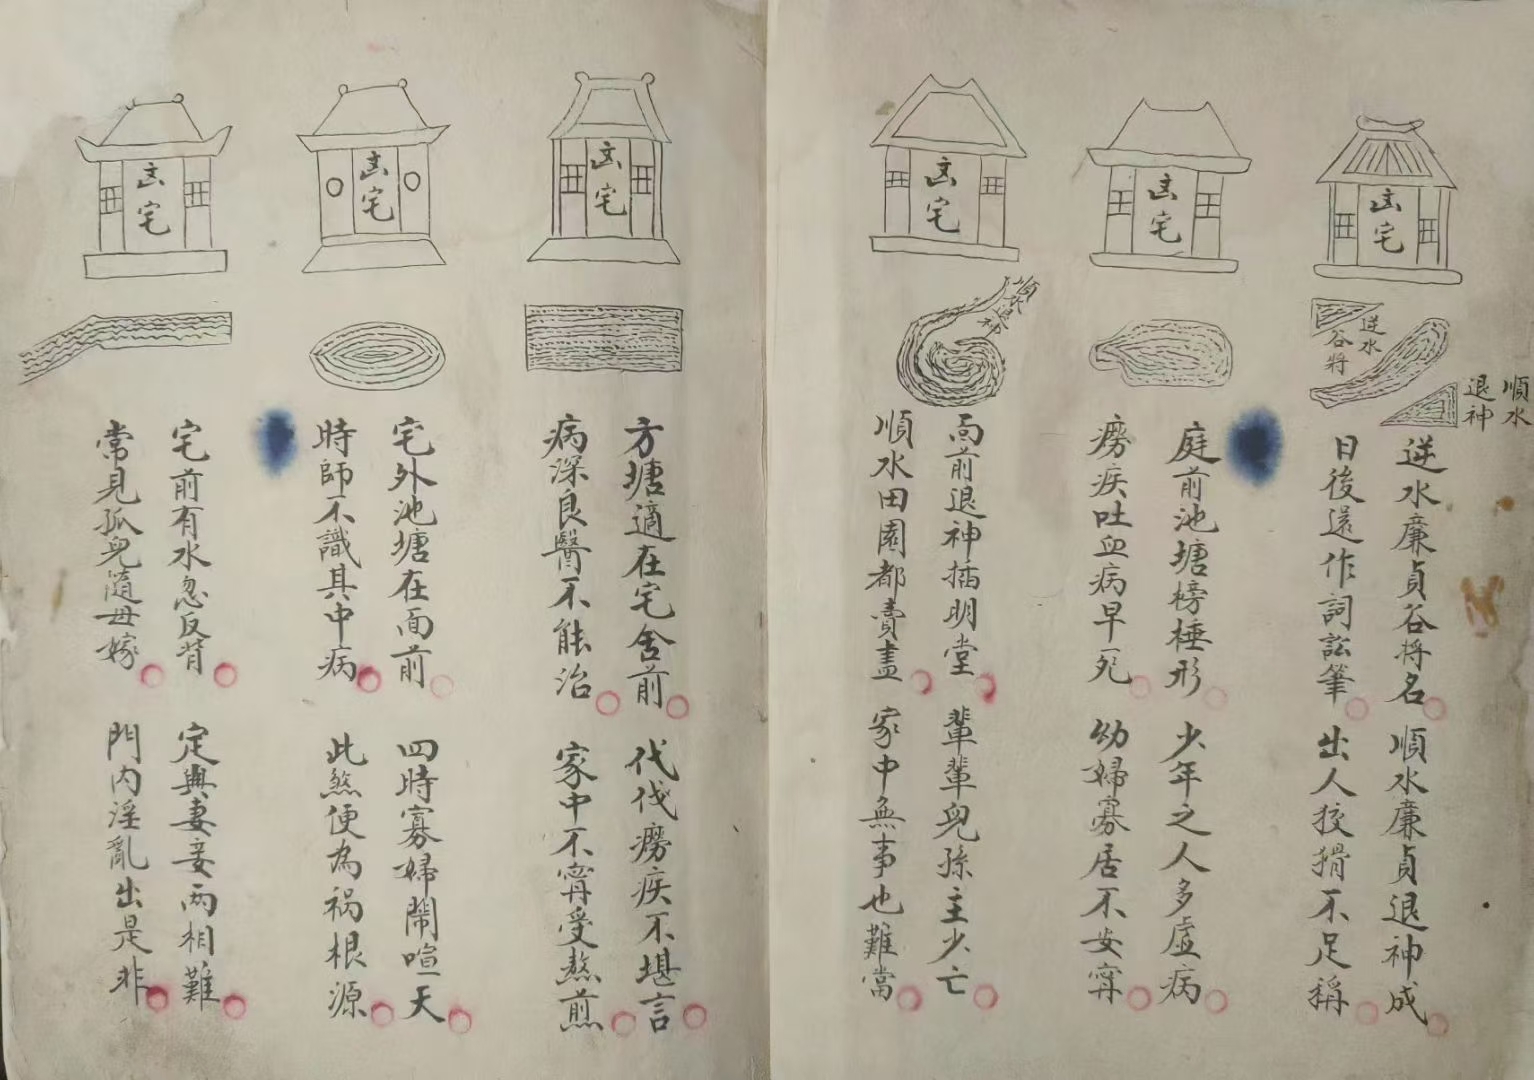 凶宅
逆水
谷將
順水
退神
逆水廉貞谷將名 順水廉貞退神成
日後還作詞訟筆 出人狡猾不足稱
凶宅
庭前池塘榜棰形 少年之人多虛病
癆疾吐血病早死 幼婦寡居不安寧
凶宅
順水退神
面前退神插明堂 輩輩兒孫主少亡
順水田園都賣盡 家中無事也難當
凶宅
方塘適在宅舍前 代代癆疾不堪言
病深良醫不能治 家中不寧受熬煎
凶宅
宅外池塘在面前 四時寡婦鬧喧天
時師不識其中病 此煞便為禍根源
凶宅
宅前有水忽反背 定與妻妾兩相難
常見孤兒隨母嫁 門內淫亂出是非